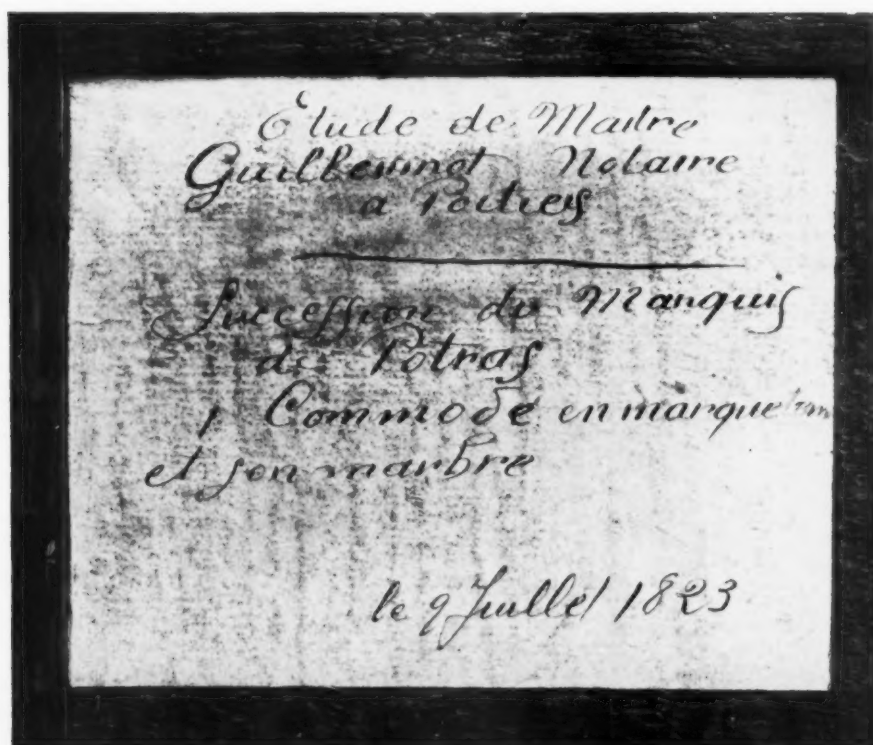 Etude de Maitre
Guillemnot Notaire
a Poitiers
Succession du Marquis
de Potras
1 Commode en marqueterie
et son marbre
le 9 Juillet 1823